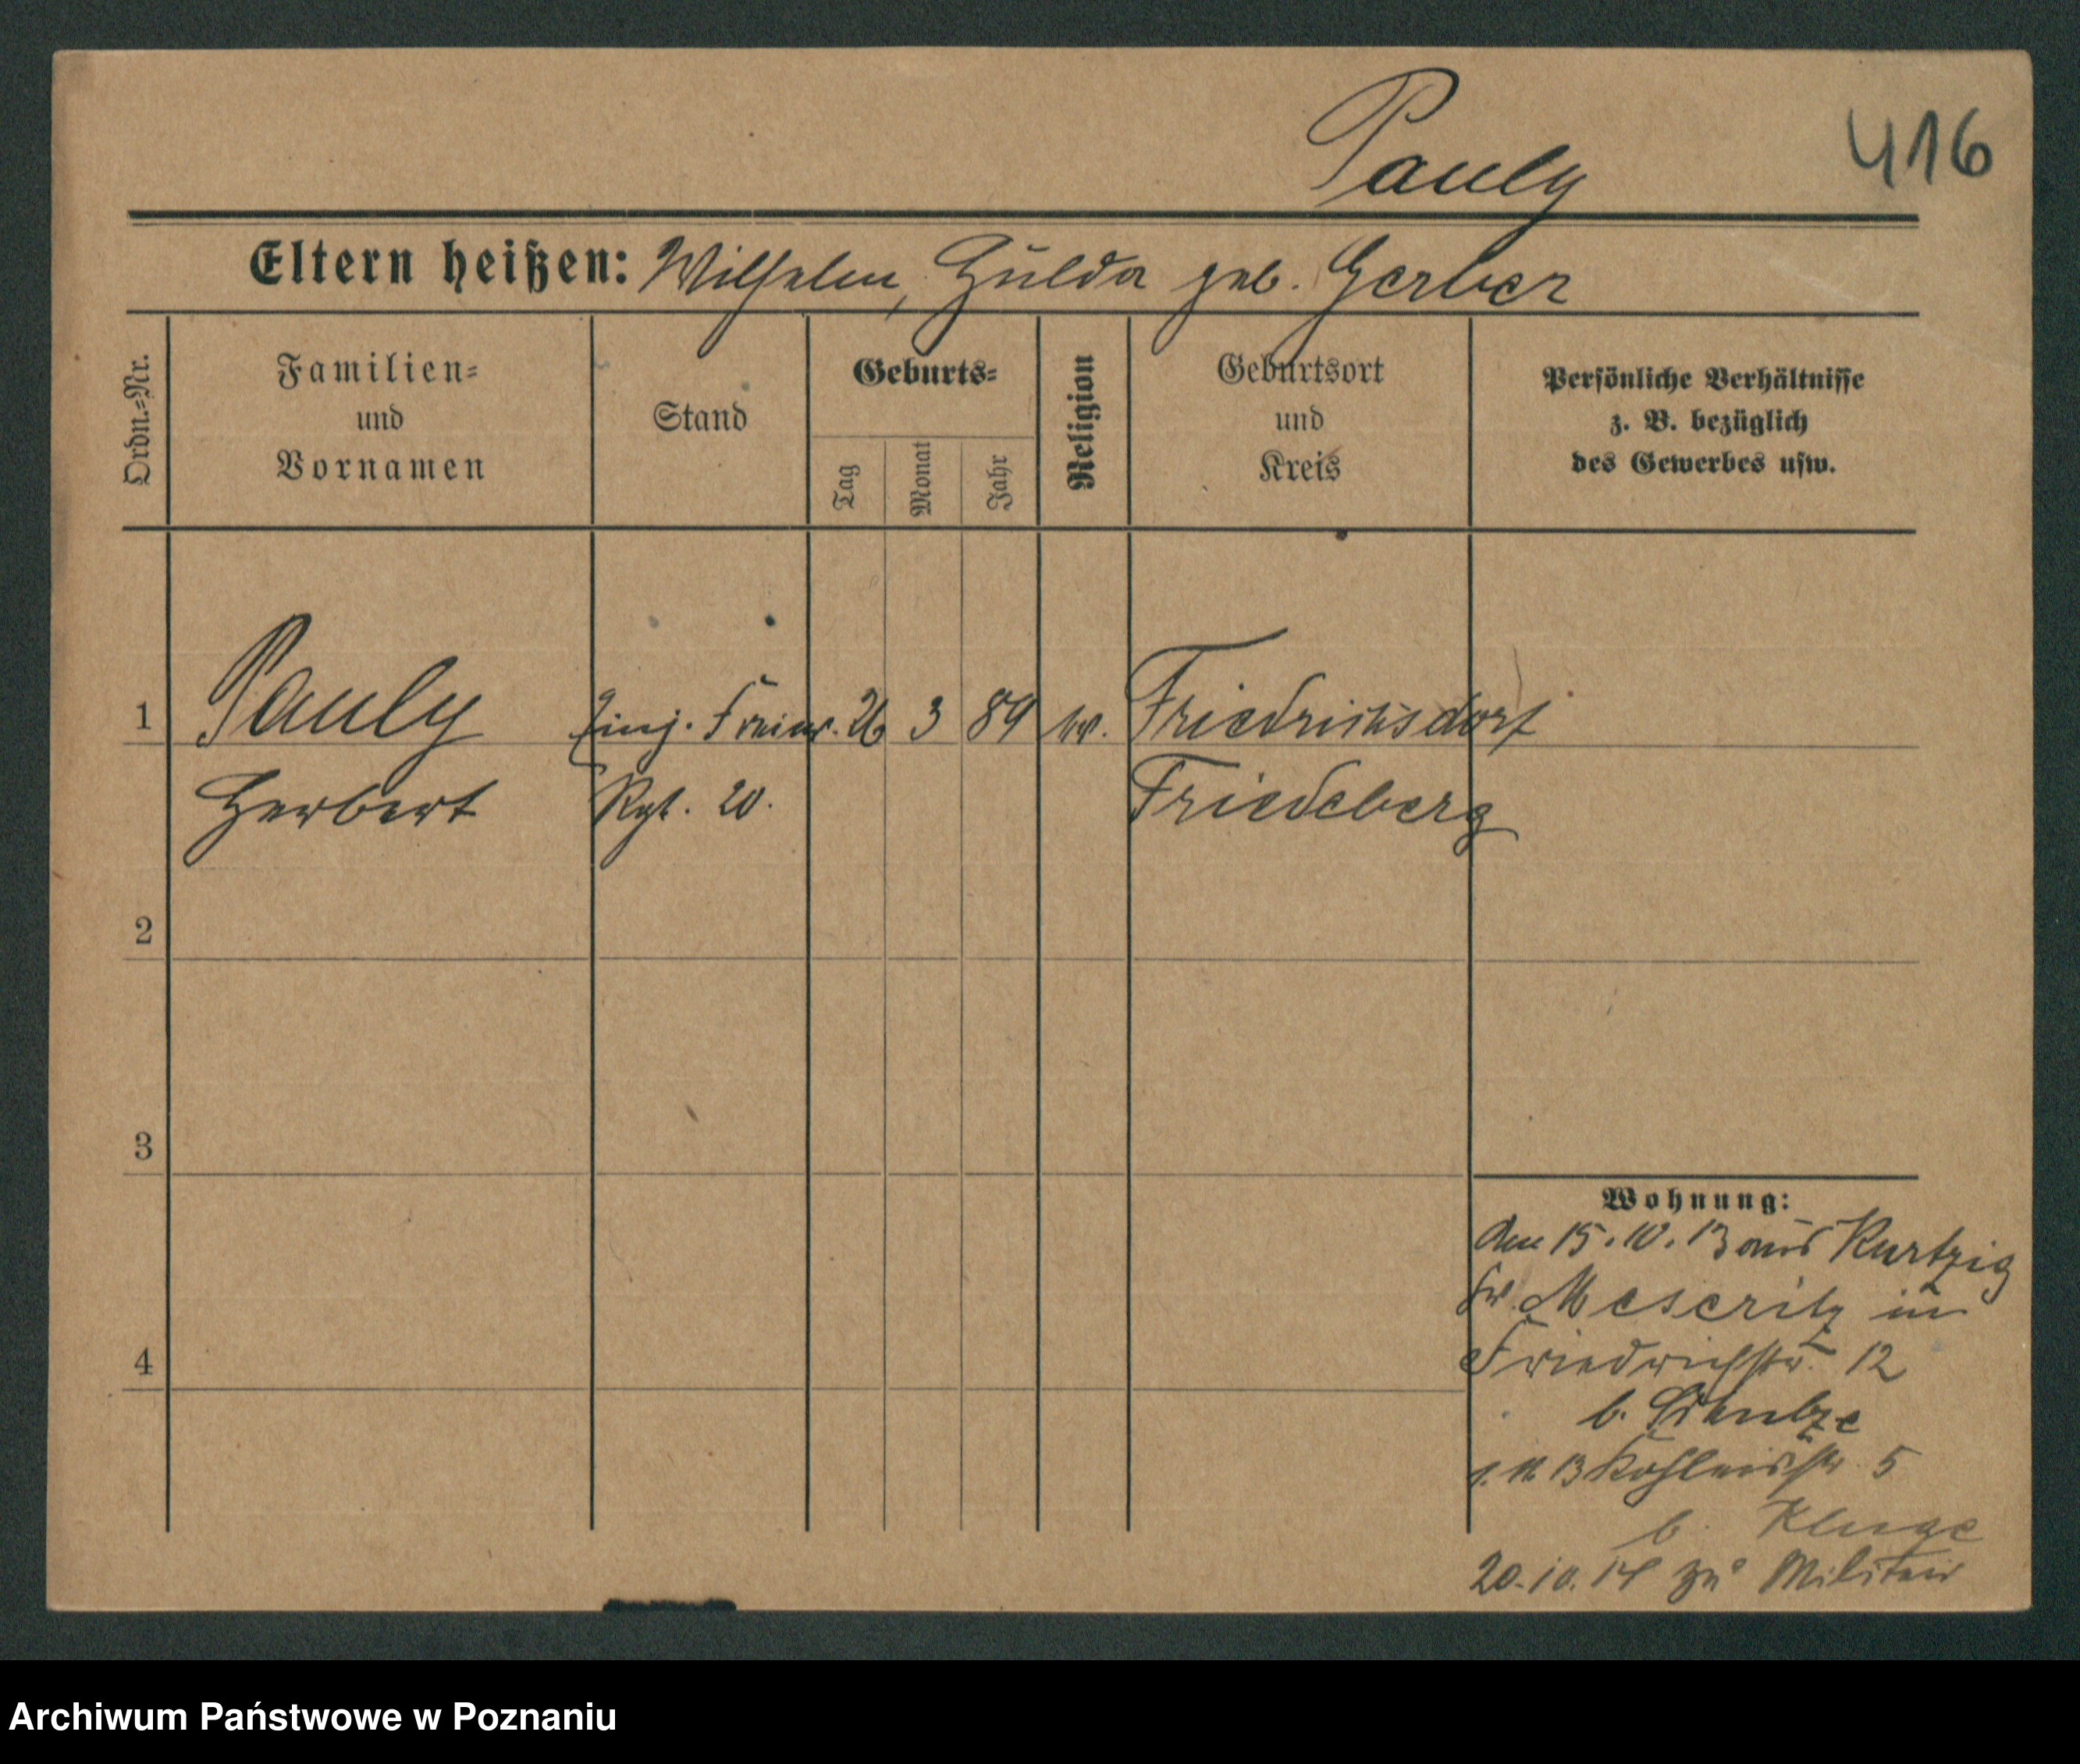 Pauly
416
Eltern heißen: Wilhelm, Hulda geb. Gerber
Ordn.=Nr.
Familien=
und
Vornamen
Stand
Geburts=
Tag
Monat
Jahr
Religion
Geburtsort
und
Kreis
Persönliche Verhältnisse
z. B. bezüglich
des Gewerbes usw.
1 Pauly Einj. Freiw. 26 3 89 ev. Friedrichsdorf
Herbert Rgt. 20. Friedeberg
2
3
4
Wohnung:
den 15.10.13 aus Kurtzig
Kr. Meseritz in
Friedrichstr. 12
b. Schulze
1.11.13 Kohleisstr. 5
b. Kluge
20.10.14 zu Militair
Archiwum Państwowe w Poznaniu